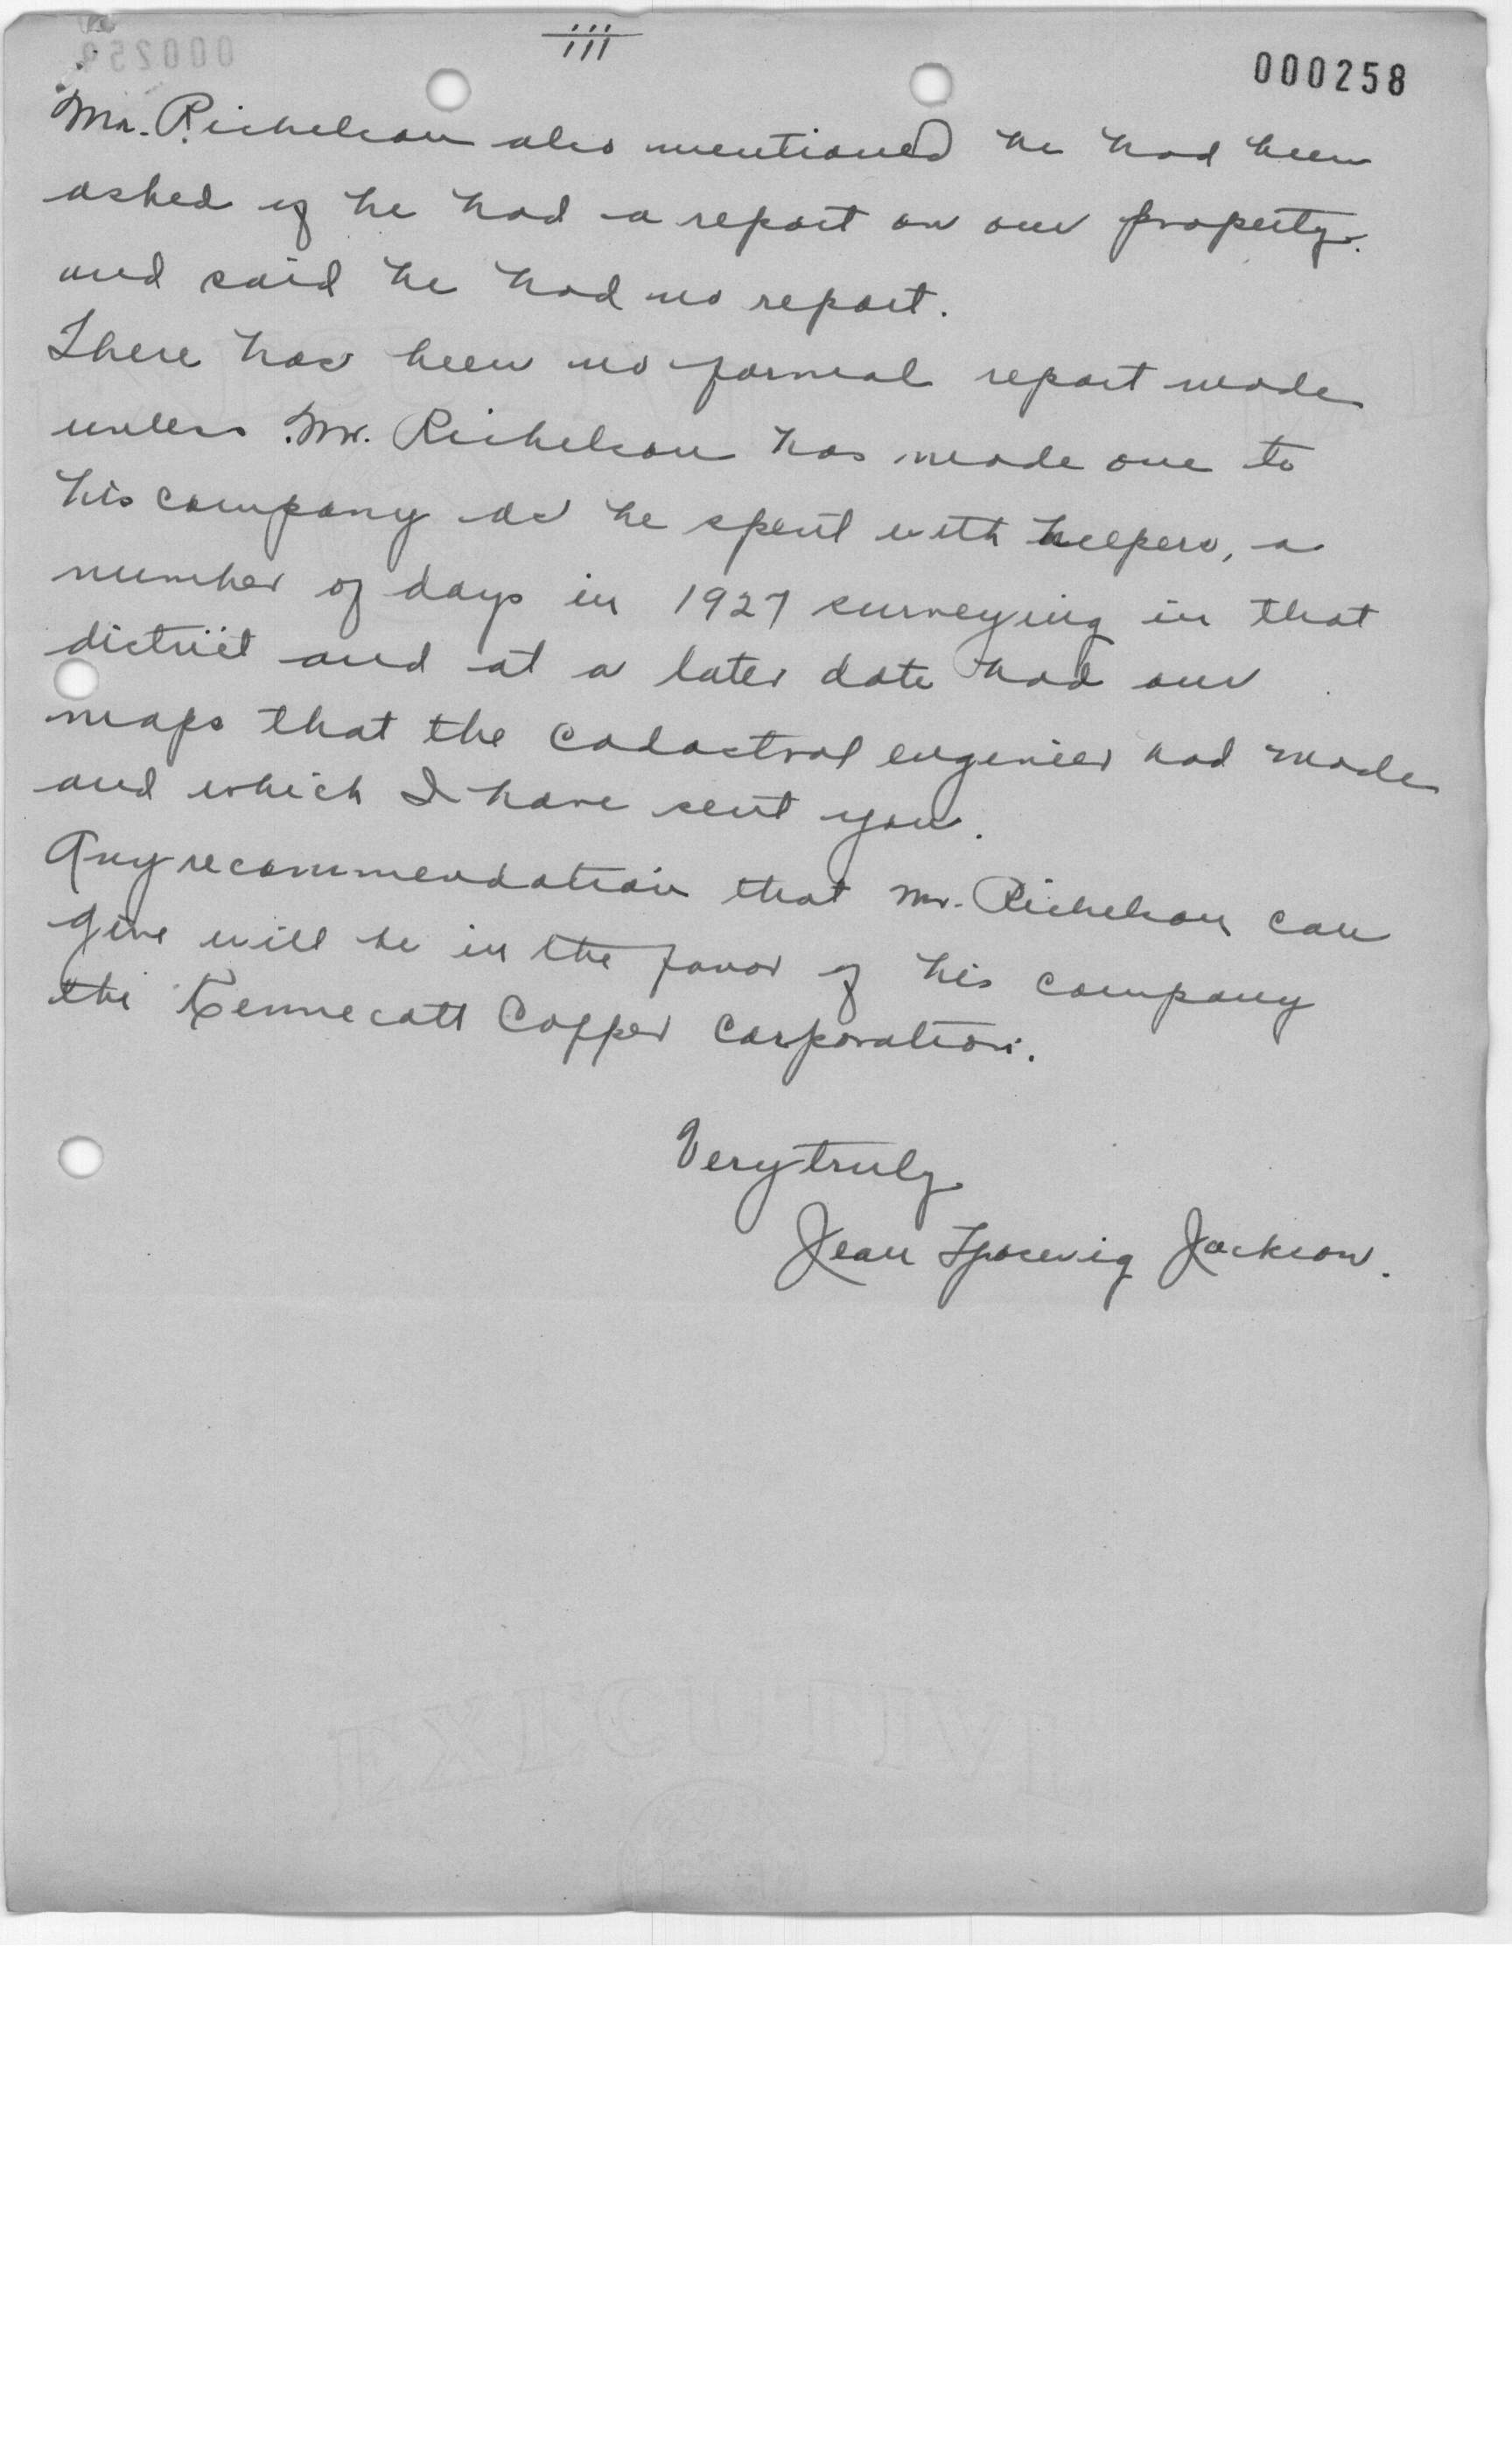 iii
000258
Mr. Richelson also mentioned he had been
asked if he had a report on our property.
and said he had no report.
There has been no formal report made
unless Mr. Richelson has made one to
his company as he spent with helpers, a
number of days in 1927 surveying in that
district and at a later date had our
maps that the cadastral engineer had made
and which I have sent you.
Any recommendation that Mr. Richelson can
give will be in the favor of his company
the Kennecott Copper Corporation.
Very truly
Jean Jackson.